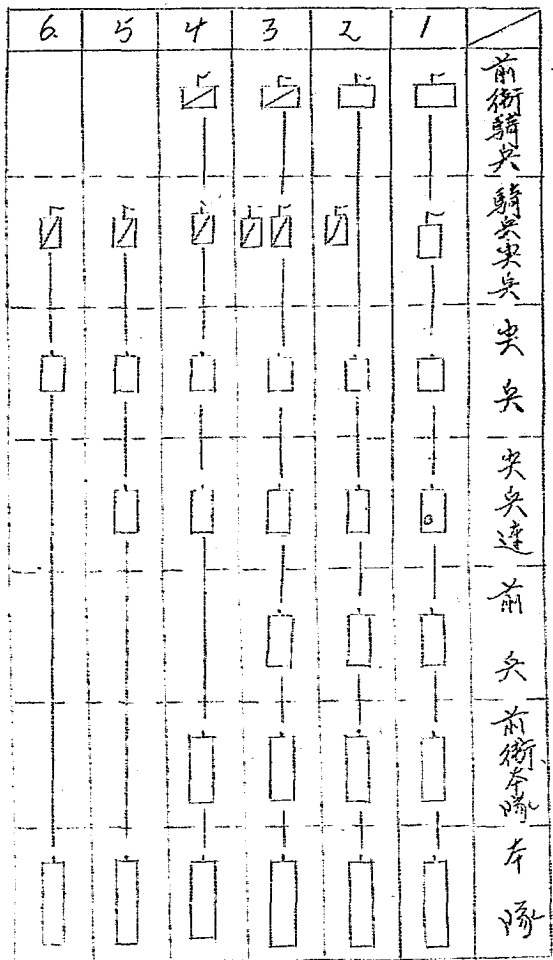 6 5 4 3 2 1
前衛騎兵
騎兵尖兵
尖兵
尖兵連
前兵
前衛本隊
本隊